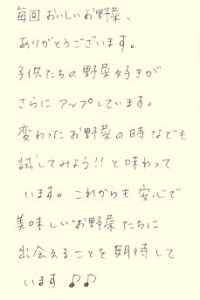 毎回おいしいお野菜、
ありがとうございます。
子供たちの野菜好きが
さらにアップしています。
変わったお野菜の時なども
試してみよう!!と味わって
います。これからも安心で
美味しいお野菜たちに
出会えることを期待して
います♪♪